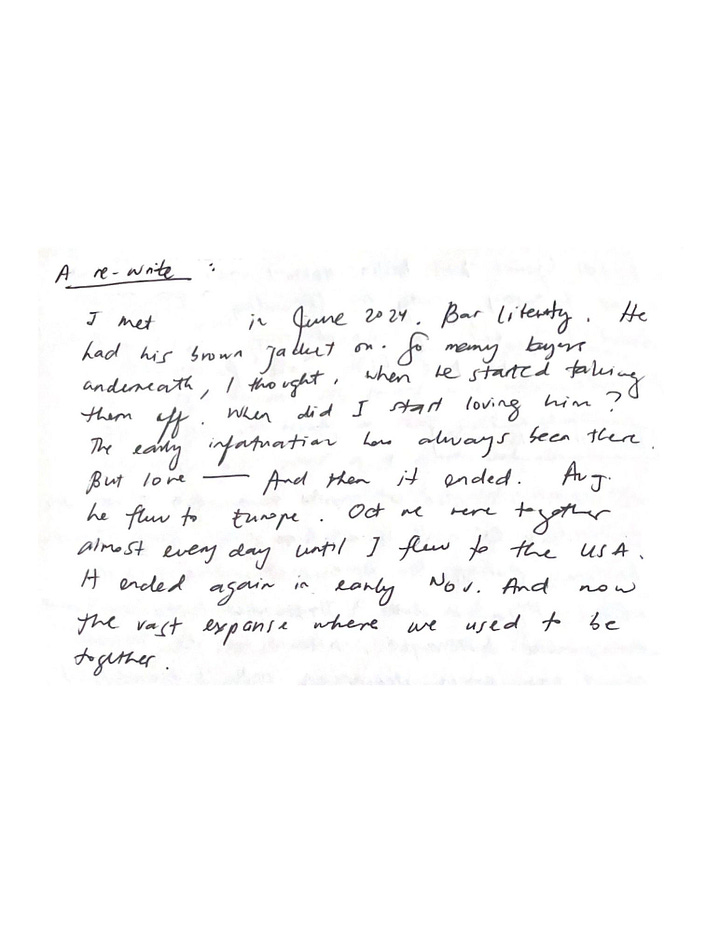 A re-write :
I met in June 2024. Bar literaty. He
had his brown jacket on. So many layers
underneath, I thought, when he started taking
them off. When did I start loving him?
The early infatuation has always been there.
But love — And then it ended. Aug.
he flew to Europe. Oct we were together
almost every day until I flew to the USA.
It ended again in early Nov. And now
the vast expanse where we used to be
together.